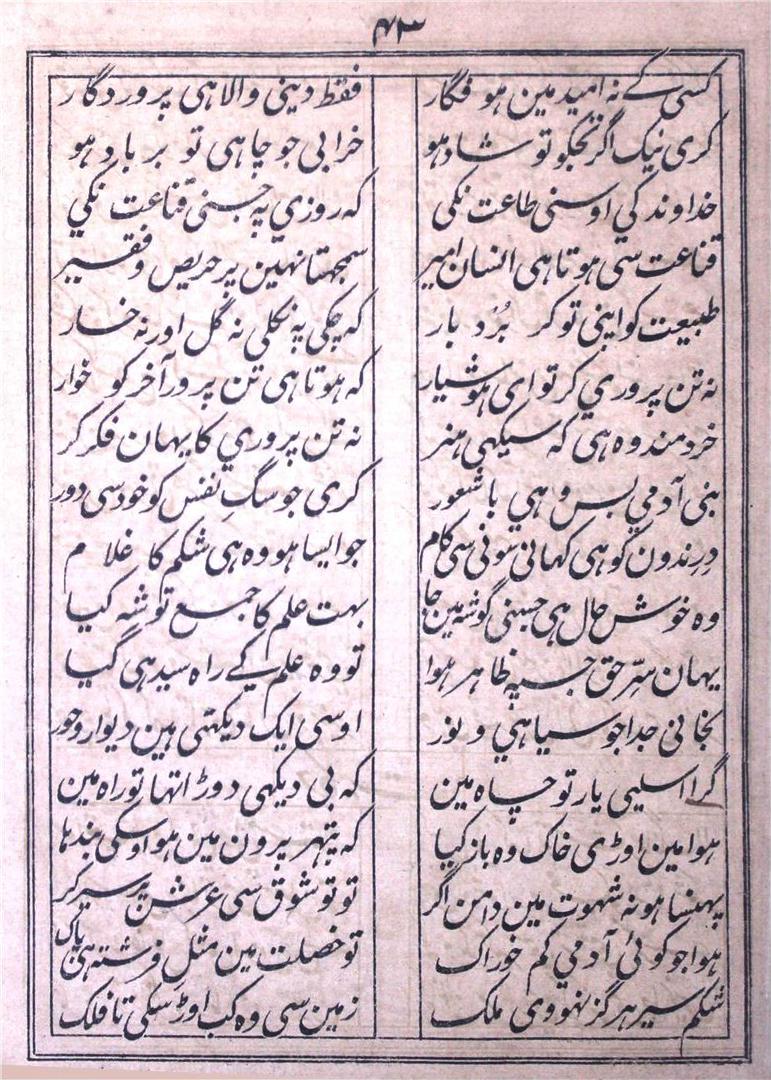 ۴۳
کسی کے نہ امید مین ہو فگار فقط دینی والا ہی پروردگار
کری نیک اگر تجکو تو شاد ہو خرابی جو چاہی تو برباد ہو
خداوند کي اوسنی طاعت نکی کہ روزي پہ جسنی قناعت نکي
قناعت سی ہوتا ہی انسان امیر سمجھتا نہین پر حریص و فقیر
طبیعت کو اپنی تو کر بُرد بار کہ چکی پہ نکلی نہ گل اور نہ خار
نہ تن پروري کر تو ای ہوشیار کہ ہوتا ہی تن پرور آخر کو خوار
خردمند وہ ہی کہ سیکھی ہنر نہ تن پروري کا یہان فکر کر
بنی آدمي بس و هي با شعور کری جو سگ نفس کو خود سی دور
درندون کو ہی کھانی سونی سی کام جو ایسا ہو وہ ہی شکم کا غلام
وہ خوش حال ہی جسنی گوشہ مین جا بہت علم کا جمع توشہ کیا
یہان سرّ حق جسپہ ظاہر ہوا تو وہ علم کے راہ سیدہی گیا
نجانی جدا جو سیاهي و نور اوسی ایک دیکھتی ہین دیوار و حور
گرا اسلیی یار تو چاہ مین کہ بی دیکھی دوڑ اتھا تو راہ مین
ہوا مین اوڑی خاک وہ باز کیا کہ پتھر پرون مین ہو اوسکی بندہا
پھنسا ہو نہ شہوت مین دامن اگر تو تو شوق سی عرش پر سیر کر
ہوا جو کوئی آدمي کم خوراک تو خصلت مین مثل فرشتہ ہی پاک
شکم سیر ہرگز نہووی ملک زمین سی وہ کب اوڑ سکی تا فلک